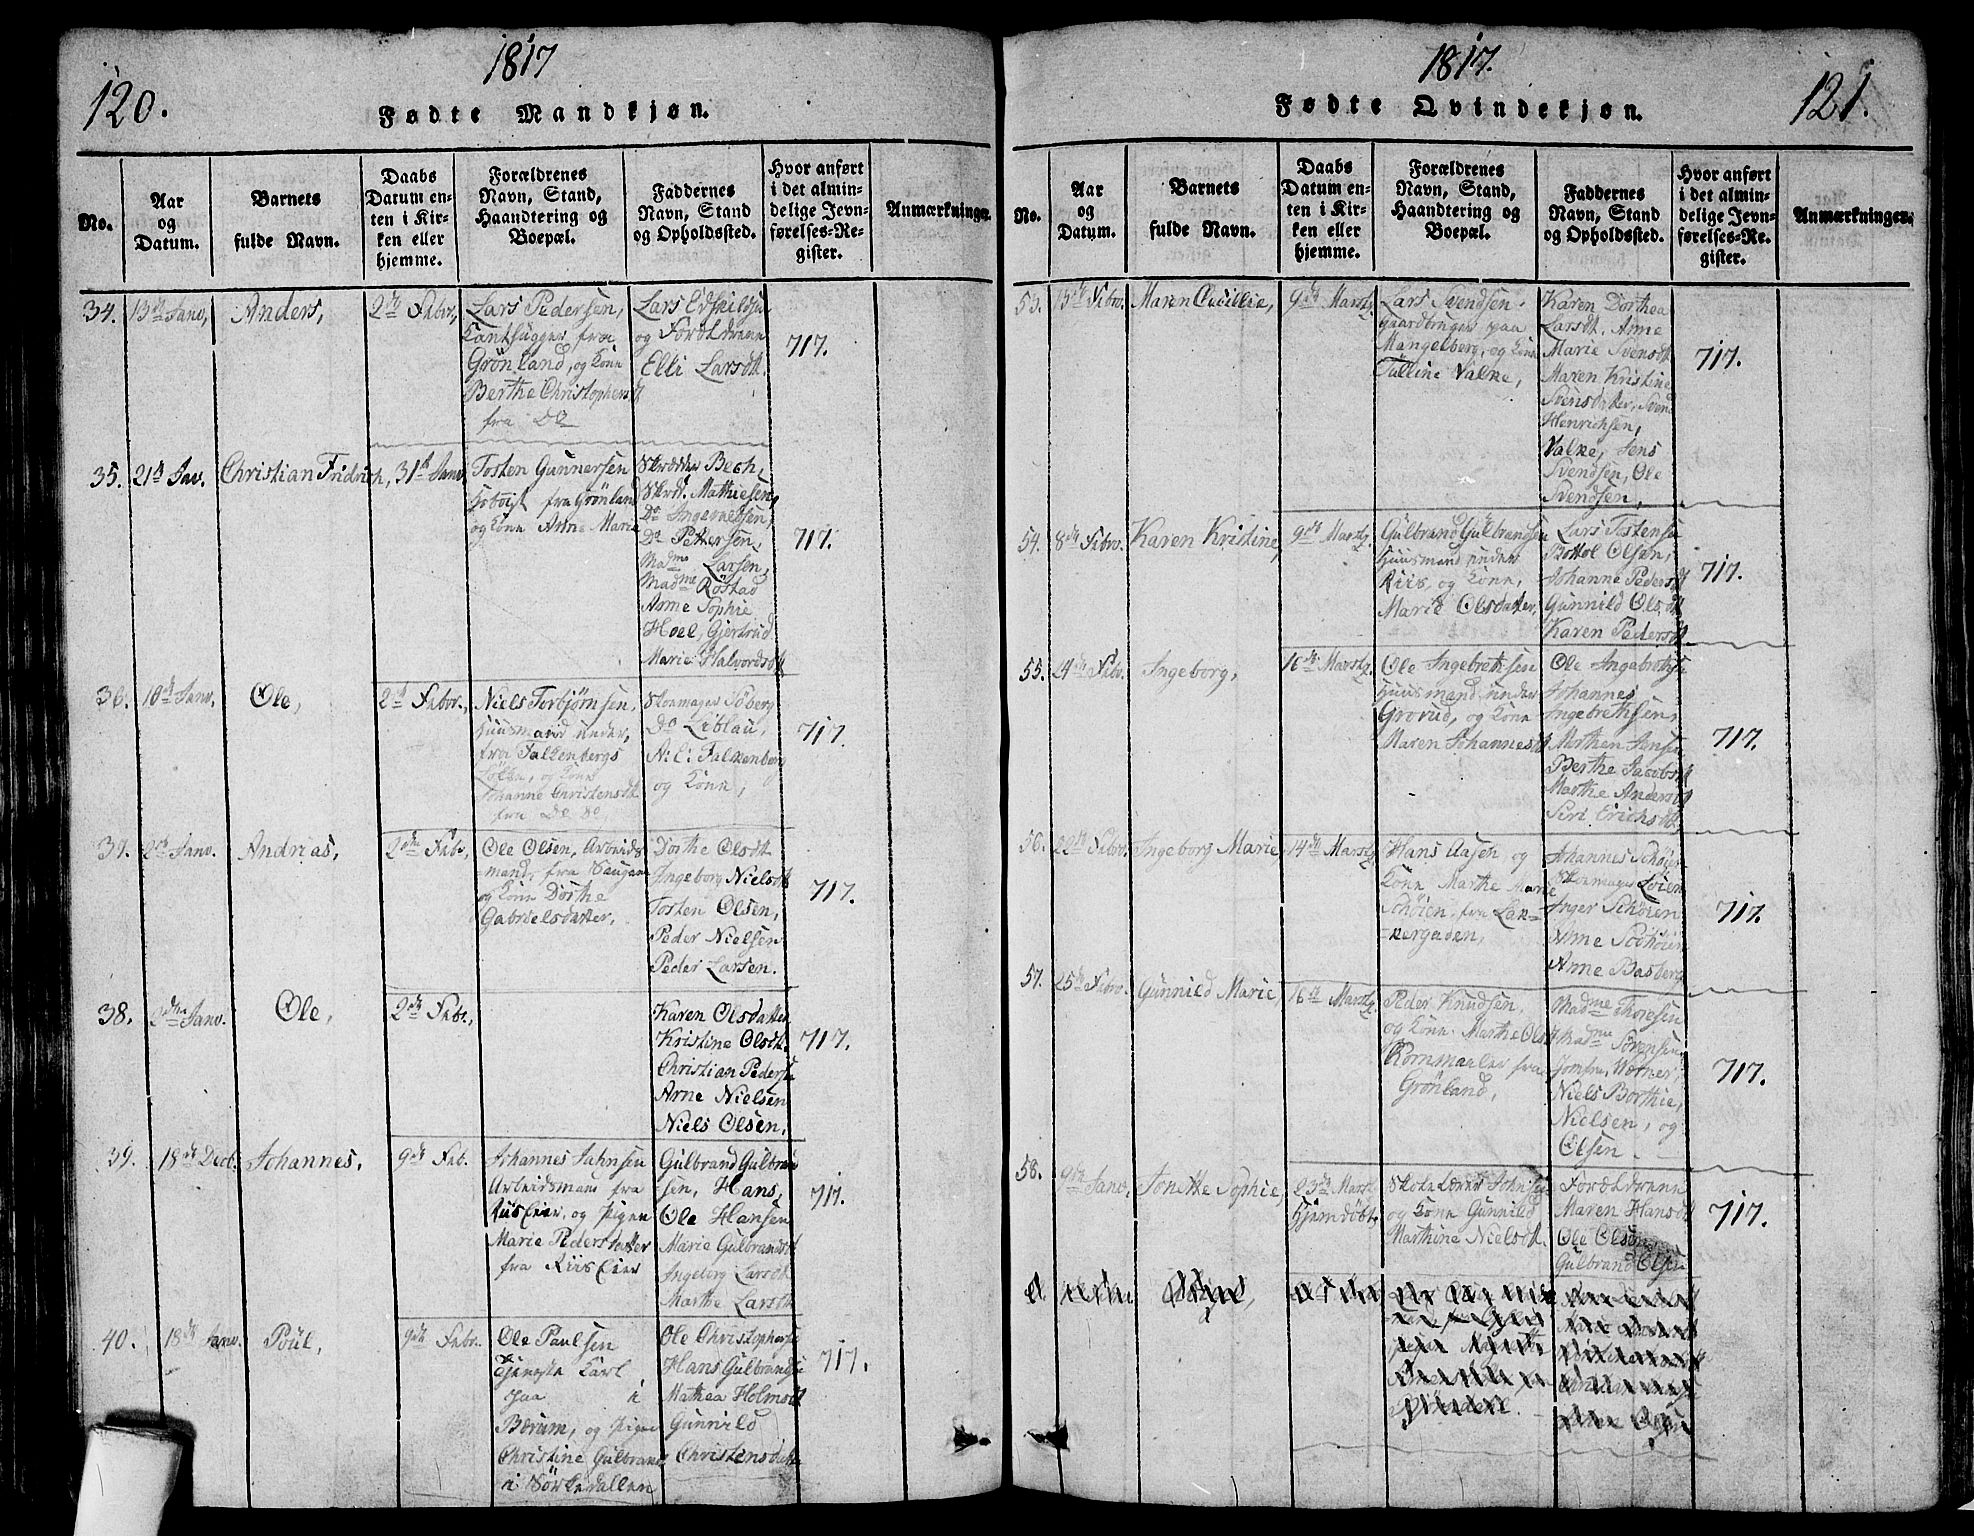 120.
1817
Fødte Mandkjøn.
No.
Aar
og
Datum.
Barnets
fulde Navn.
Daabs
Datum en-
ten i Kir-
ken eller
hjemme.
Forældrenes
Navn, Stand,
Haandtering og
Boepæl.
Faddernes
Navn, Stand
og Opholdssted.
Hvor anført
i det almin-
delige Jevn-
førelses-Re-
gister.
Anmærkninger.
34.
13de Janv,
Anders,
2de Febr,
Lars Pedersen,
fra
Grönland, og Kone
Berthe Christophersd
fra Do
Lars Edskildsen
og Forældrene
Elli Larsdt.
717.
35.
21de Jav.
Christian Fridrich,
31te Janv
Tosten Gunnersen
fra Grönland
og Kone Anne Marie
Skrædder Bech,
Skrd. Mathiesen,
Do Ingevaldsen,
Do Pettersen,
Madme Larsen,
Madme Röstad
Anne Sophie
Hoel, Gjertrud
Marie Halvordsdt
717.
36.
10de Janv.
Ole,
2de Febr.,
Niels Torbjørnsen,
Huusmand under,
fra Falkenbergs
Løkke, og Kone
Johanne Christensdt
fra Do Do,
Skomager Söberg
Do Liblau,
Nili Falkenberg
og Kone,
717.
37.
2de Janv.
Andreas,
2den Febr,
Ole Olsen, Arbeids
-mand, fra Vaugen
og Kone Dorthe
Gabrielsdatter,
Dorthe Olsdt
Ingeborg Nielsdt
Tosten Olsen,
Peder Nielsen
Peder Larsen.
717.
38.
2den Janv.
Ole,
2de Febr,
Karen Olsdatter
Kristine Olsdt.
Christian Peders
Arne Nielsen
Niels Olsen,
717.
39.
18de Decb.
Johannes,
9de Feb.
Johannes Jahnsen
Arbeidsmand fra
Riis Eier, og Pigen
Marie Pedersdatter
fra Riis Eier
Gulbrand Gulbran
sen, Hans,
Ole Hansen
Marie Gulbrandsdt
Ingeborg Larsdt
Marthe Larsdt
717.
40.
18de Janv.
Poul,
9de Febr.
Ole Paulsen
Tjeneste Karl
paa i
Bærum, og Pigen
Christine Gulbrands
i Sörkedallen
Ole Christophersen
Hans Gulbrandsen
Mathea Holmsdt
Gunnild
Christensdatter
717.
1817.
121.
Fødte Qvindekjøn.
No.
Aar
og
Datum.
Barnets
fulde Navn.
Daabs
Datum en-
ten i Kir-
ken eller
hjemme.
Forældrenes
Navn, Stand,
Haandtering og
Boepæl.
Faddernes
Navn, Stand
og Opholdssted.
Hvor anført
i det almin-
delige Jevn-
førelses-Re-
gister.
Anmærkninger.
53.
13de Febr.
Maren Cecillie,
9de Marsty
Lars Svendsen
Gaardbruger paa
Mangelberg, og Kone
Tulline Valke,
Karen Dorthea
Larsdt. Anne
Marie Svensdt
Maren Kristine
Svensdatter, Svend
Henrichsen,
Valke, Jens
Svendsen, Ole
Svendsen,
717.
54.
8de Febr.
Karen Kristine,
9de Marsty
Gulbrand Gulbrandsen
Huusmand under
Riis, og Kone,
Marie Olsdatter,
Lars Tostensen
Bottol Olsen,
Johanne Pedersdt
Gunnild Olsdt
Karen Pedersdt
717.
55.
4de Febr.
Ingeborg,
16de Marsty
Ole Ingebrethsen
Huusmand under
Grorud, og Kone
Maren Johannesdt
Ole Ingebrethsen
Johannes
Ingebrethsen,
Morthen Jensen
Berthe Jacobsdt
Marthe Andersdt
Siri Erichsdt
717.
56.
22de Febr.
Ingeborg Marie
14de Marsty
Hans Aasen og
Kone Marthe Marie
Schöien fra Lak-
-kergaden,
Johannes Schöien
Skomager
Inger Schöien
Anne Schöien
Anne Basberg
717.
57.
25de Febr.
Gunnild Marie,
16de Marsty
Peder Knudsen,
og Kone Marthe Olsdt
Kornmaaler fra
Grönland,
Madme Thoresen
Madme Sörensen
Jomfru Werner,
Niels Borthie,
Nielsen, og
Olsen
717.
58.
9de Janv.
Tonette Sophie,
23de Marsty
hjemdöbt.
Skole Lærer Johnsen
og Kone Gunnild
Marthine Nielsdt
Forældrene
Maren Hansdt
Ole Olsen
Gulbrand Olsen
717.